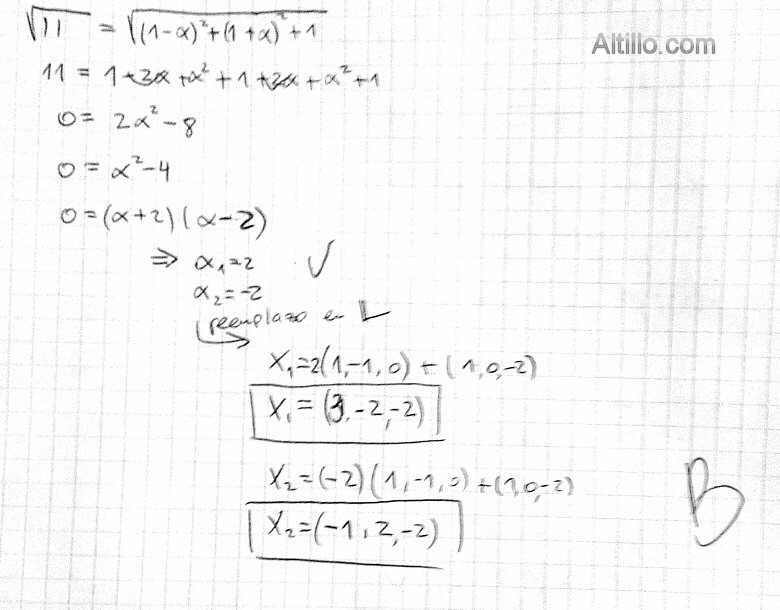 √11 = √((1-α)²+(1+α)²+1
Altillo.com
11 = 1-2α+α²+1+2α+α²+1
0= 2α²-8
0= α²-4
0=(α+2)(α-2)
⇒ α₁=2 ✓
α₂=-2
reemplazo en L
X₁=2(1,-1,0)+(1,0,-2)
X₁=(3,-2,-2)
X₂=(-2)(1,-1,0)+(1,0,-2)
B
X₂=(-1,2,-2)